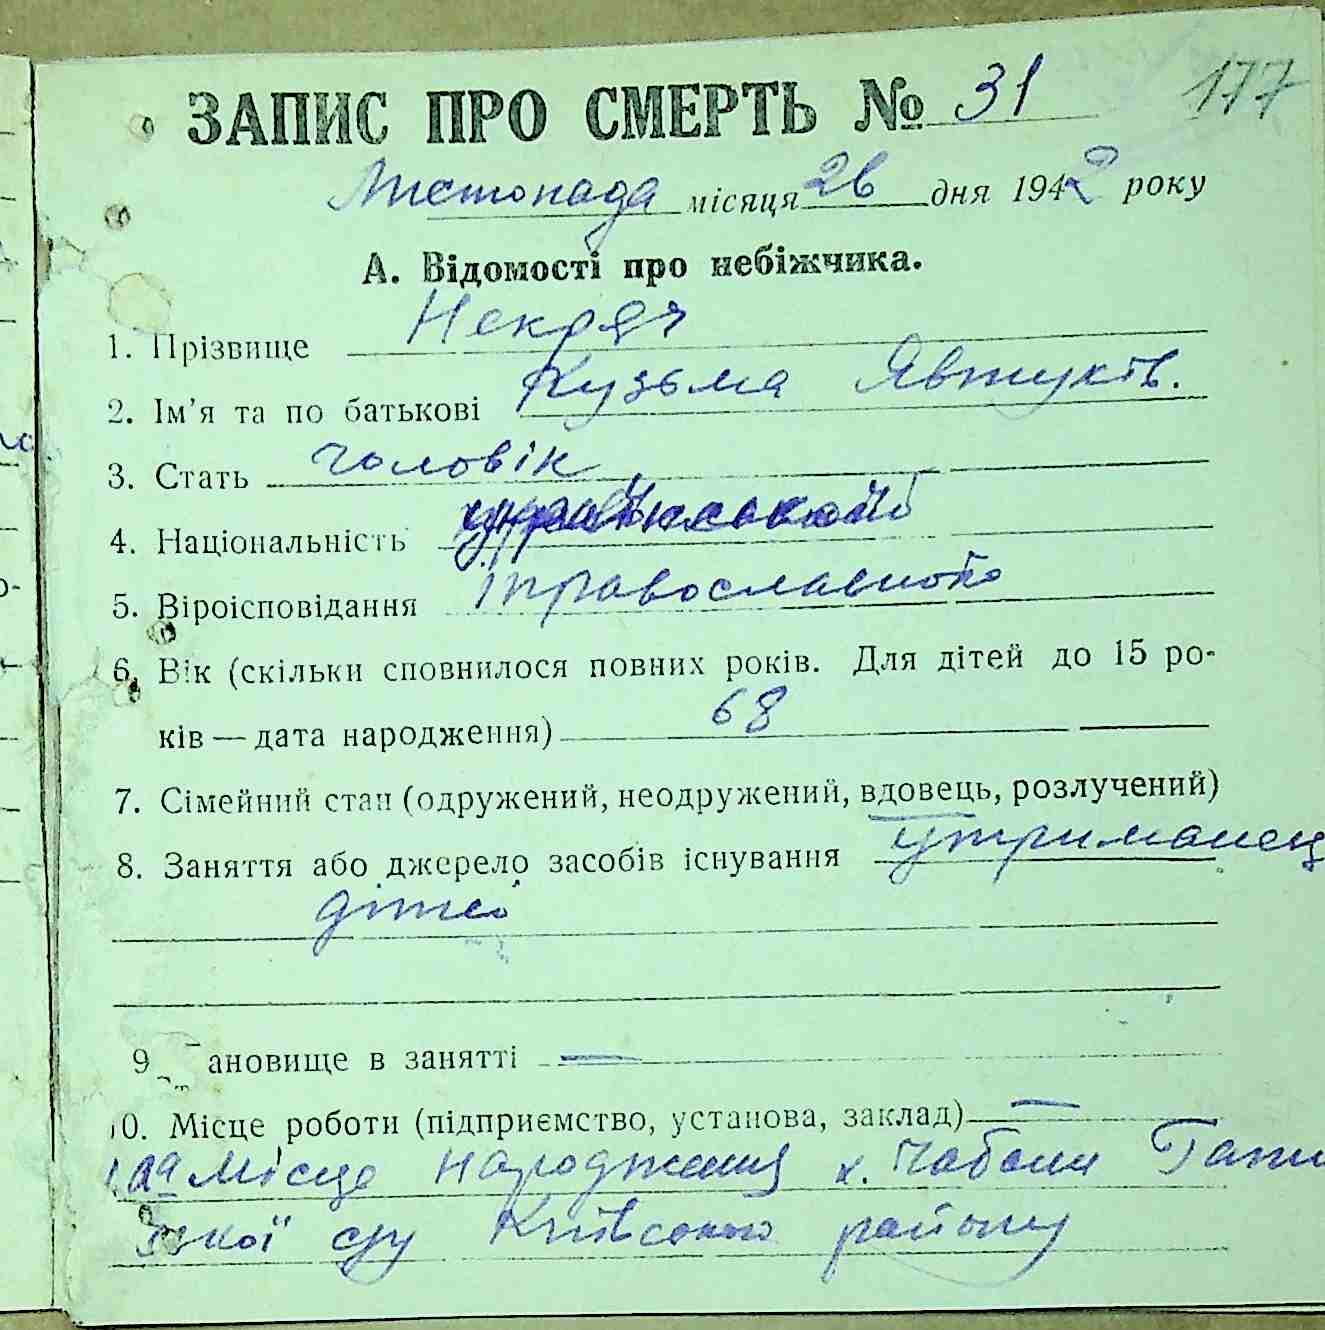 177
ЗАПИС ПРО СМЕРТЬ № 31
Листопада місяця 26 дня 1942 року
А. Відомості про небіжчика.
1. Прізвище Некряч
2. Ім'я та по батькові Кузьма Явтухів.
3. Стать чоловік
4. Національність української
5. Віроісповідання православного
6. Вік (скільки сповнилося повних років. Для дітей до 15 ро-
ків — дата народження) 68
7. Сімейний стан (одружений, неодружений, вдовець, розлучений)
8. Заняття або джерело засобів існування утриманець
дітей
9 ановище в занятті —
10. Місце роботи (підприємство, установа, заклад) —
10а Місце народження х. Чабани
ської с/у Київського району